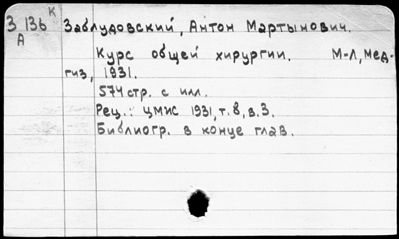 К
З 136 Заблудовский, Антон Мартынович.
А
Курс общей хирургии. М-Л, Мед-
гиз, 1931.
574 стр. с илл.
Рец.: ЦМЖС 1931, т. 8, в. 3.
Библиогр. в конце глав.